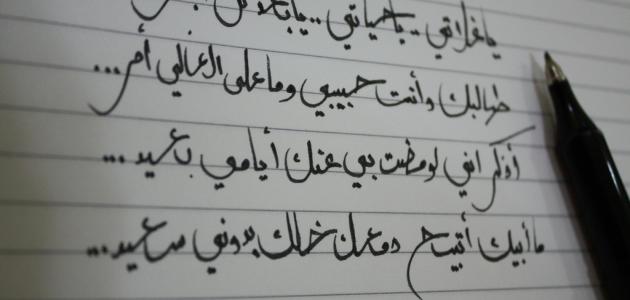 ياغلاتي .. ياحياتي ..
طالبك وأنت حبيبي وما على الغالي أمر ...
أذكر اني لو مضت بي عنك أيامي بعيد ...
ما أبيك أتبيح دمعك خلك بدوني سعيد ...